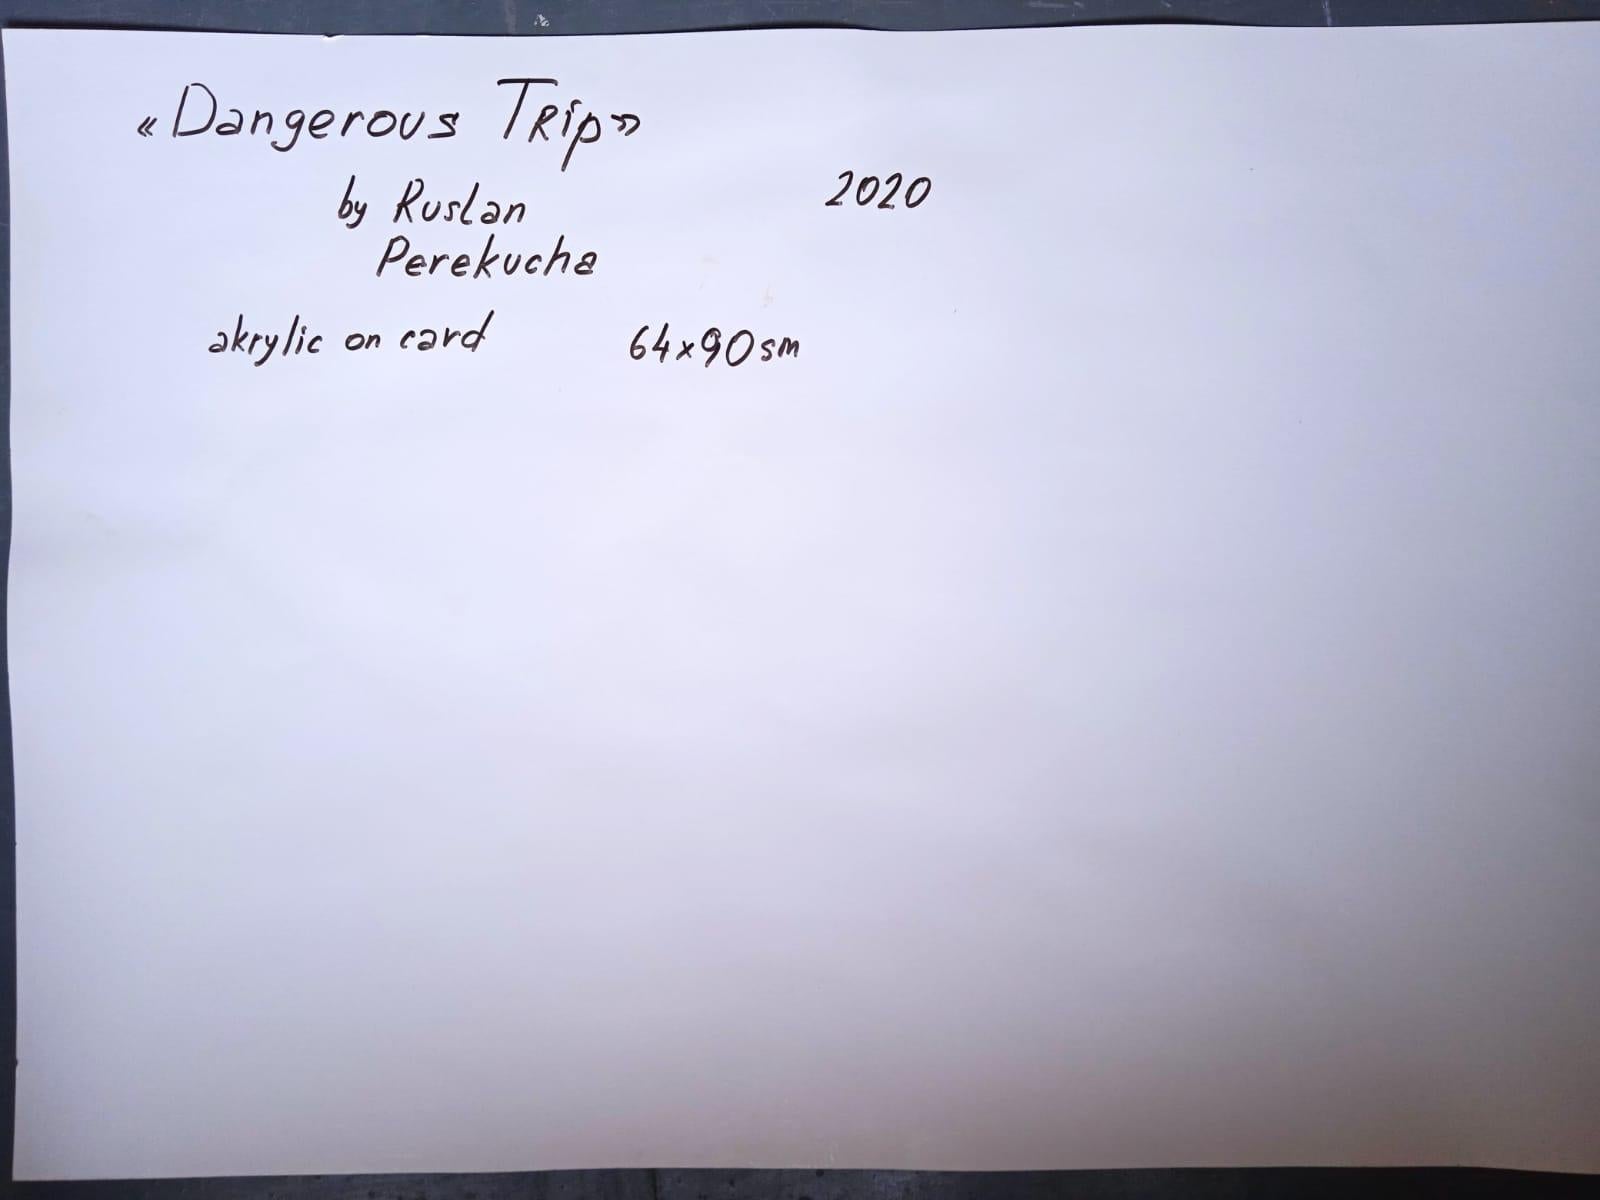 «Dangerous Trip»
by Ruslan
2020
Perekucha
akrylic on card
64x90sm